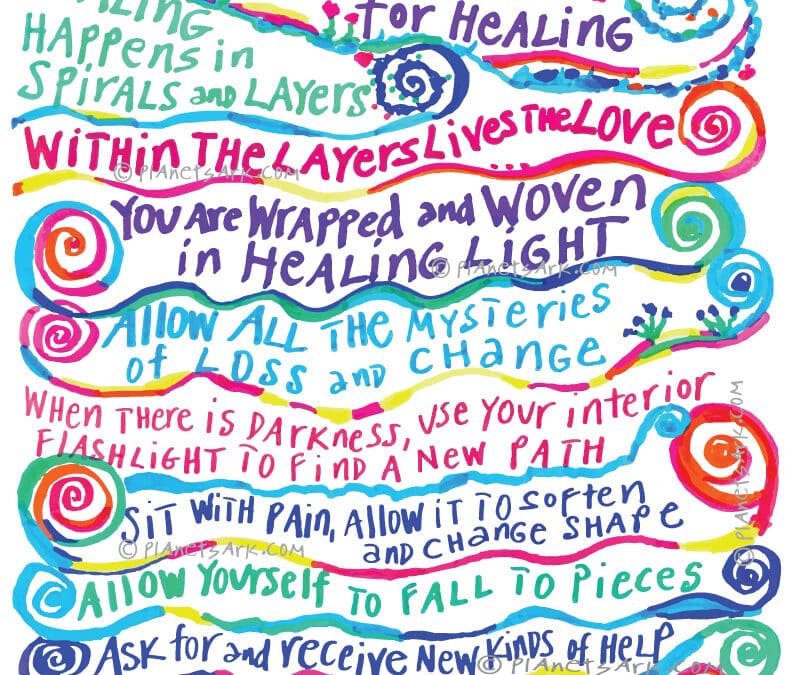 for HEALING
HAPPENS in
SPIRALS and LAYERS
WITHIN THE LAYERS LIVES THE LOVE
© PLANETSARK.COM
YOU ARE WRAPPED and WOVEN
in HEALING LIGHT
© PLANETSARK.COM
ALLOW ALL THE MYSTERIES
of LOSS and CHANGE
WHEN THERE is DARKNESS, USE YOUR interior
FLASHLIGHT TO FIND A NEW PATH
© PLANETSARK.COM
SIT WITH PAIN, ALLOW IT TO SOFTEN
and CHANGE SHAPE
© PLANETSARK.COM
ALLOW YOURSELF TO FALL TO PIECES
©
ASK for and receive NEW KINDS of HELP
© PLANETSARK.COM